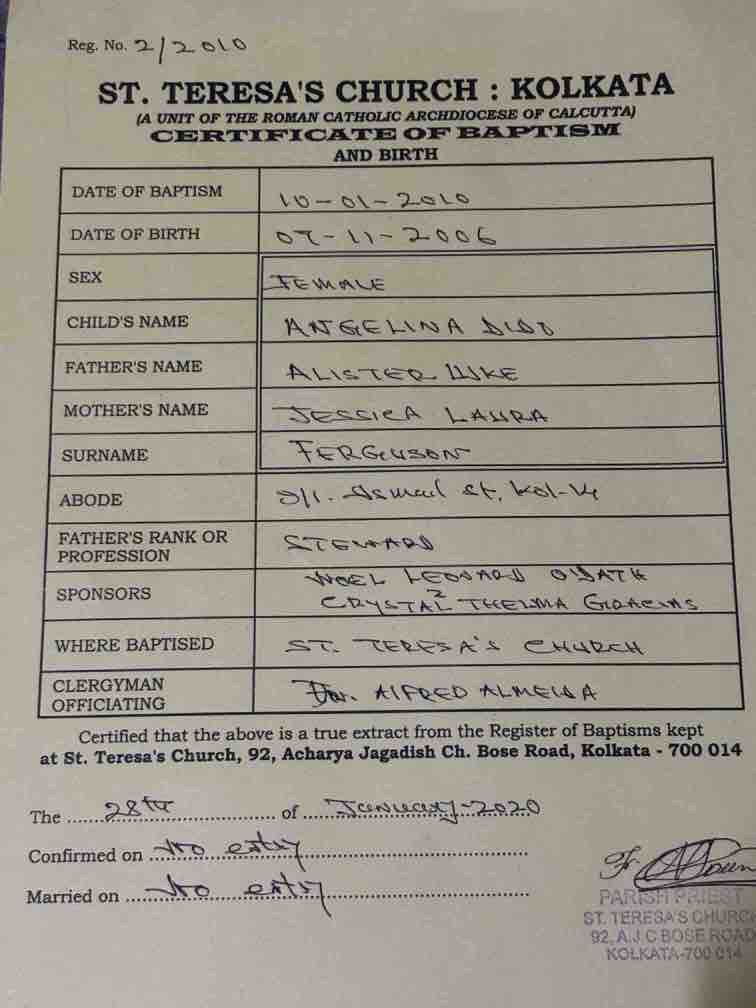 Reg. No. 2/2010
ST. TERESA'S CHURCH : KOLKATA
(A UNIT OF THE ROMAN CATHOLIC ARCHDIOCESE OF CALCUTTA)
CERTIFICATE OF BAPTISM
AND BIRTH
DATE OF BAPTISM 10-01-2010
DATE OF BIRTH 07-11-2006
SEX FEMALE
CHILD'S NAME ANGELINA
FATHER'S NAME ALISTER LUKE
MOTHER'S NAME JESSICA LAURA
SURNAME FERGUSON
ABODE St, Kol-14
FATHER'S RANK OR
PROFESSION STEWARD
NOEL LEONARD
SPONSORS
CRYSTAL THELMA
WHERE BAPTISED ST. TERESA'S CHURCH
CLERGYMAN
OFFICIATING Fr. ALFRED ALMEIDA
Certified that the above is a true extract from the Register of Baptisms kept
at St. Teresa's Church, 92, Acharya Jagadish Ch. Bose Road, Kolkata - 700 014
The 28th of January-2020
Confirmed on No entry
Married on No entry
Fr.
PARISH PRIEST
ST. TERESA'S CHURCH
92, A.J C BOSE ROAD
KOLKATA-700 014